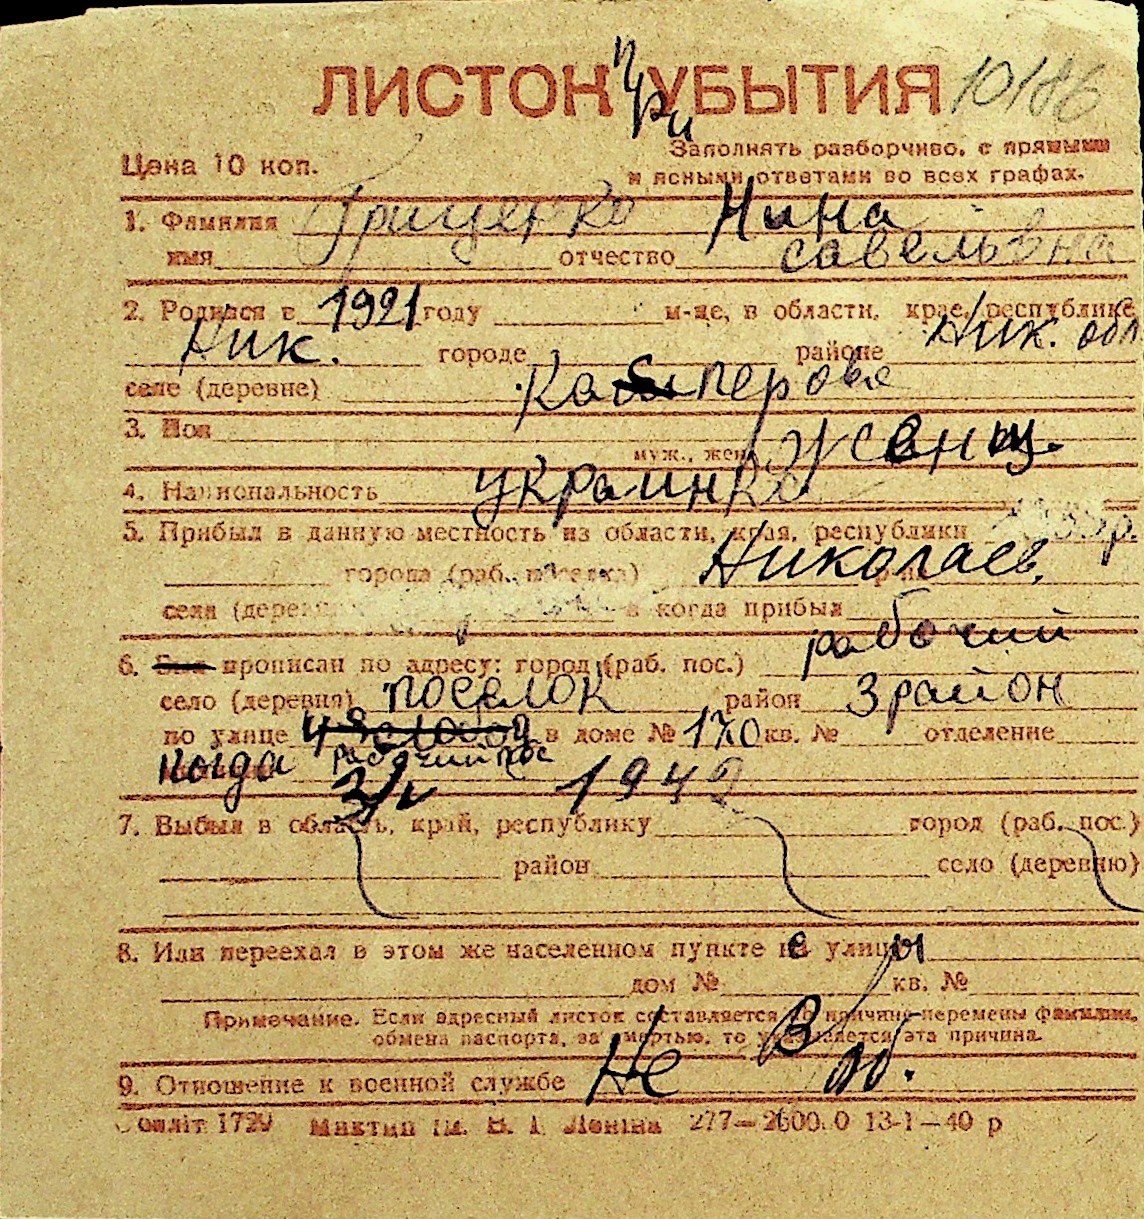 при
ЛИСТОК УБЫТИЯ 10186
Цена 10 коп.
Заполнять разборчиво, с прямыми
и ясными ответами во всех графах.
1. Фамилия Гриценко Нина
имя отчество савельвна
2. Родился в 1921 году м-це, в области, крае, республике
Ник. городе районе Ник. обл
селе (деревне) Касперовке
3. Пол муж., жен. женщ.
4. Национальность украинка
5. Прибыл в данную местность из области, края, республики
города (раб. поселка) Николаев.
села (деревни и когда прибыл
6. Был прописан по адресу: город (раб. пос.) рабочий
село (деревня) поселок район 3 район
по улице в доме № 170 кв. № отделение
когда рабочий пос
3/V 1942
7. Выбыл в область, край, республику город (раб. пос.)
район село (деревню)
8. Или переехал в этом же населенном пункте на улицу
дом № кв. №
Примечание. Если адресный листок составляется по причине перемены фамилии,
обмена паспорта, за смертью, то указывается эта причина.
9. Отношение к военной службе Не в/об.
1729 277—2600.0 13-1—40 р